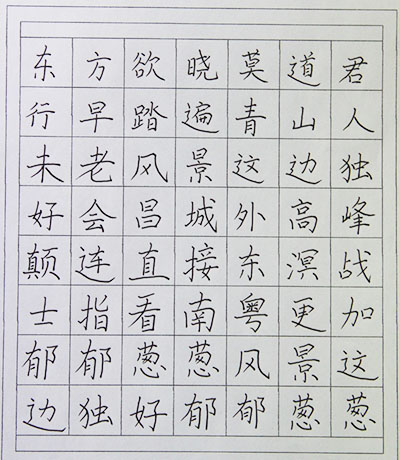 东方欲晓莫道君
行早踏遍青山人
未老风景这边独
好会昌城外高峰
颠连直接东溟战
士指看南粤更加
郁郁葱葱风景这
边独好郁郁葱葱